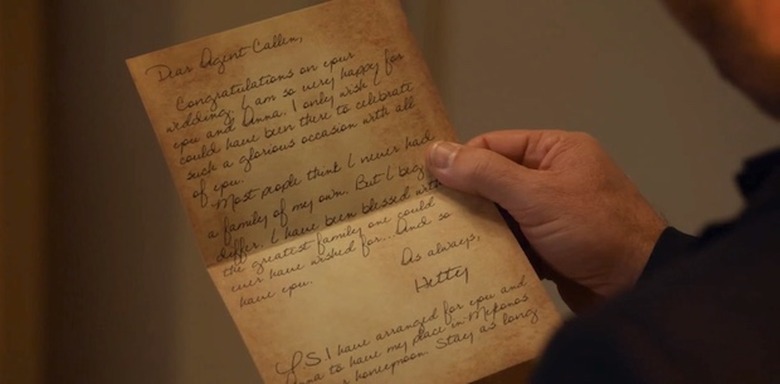 Dear Agent Callen,
Congratulations on your
wedding. I am so very happy for
you and Anna. I only wish I
could have been there to celebrate
such a glorious occasion with all
of you.
Most people think I never had
a family of my own. But I beg
differ. I have been blessed with
the greatest family one could
ever have wished for... And so
have you.
As always,
Hetty
P.S. I have arranged for you and
Anna to have my place in Mykonos
honeymoon. Stay as long